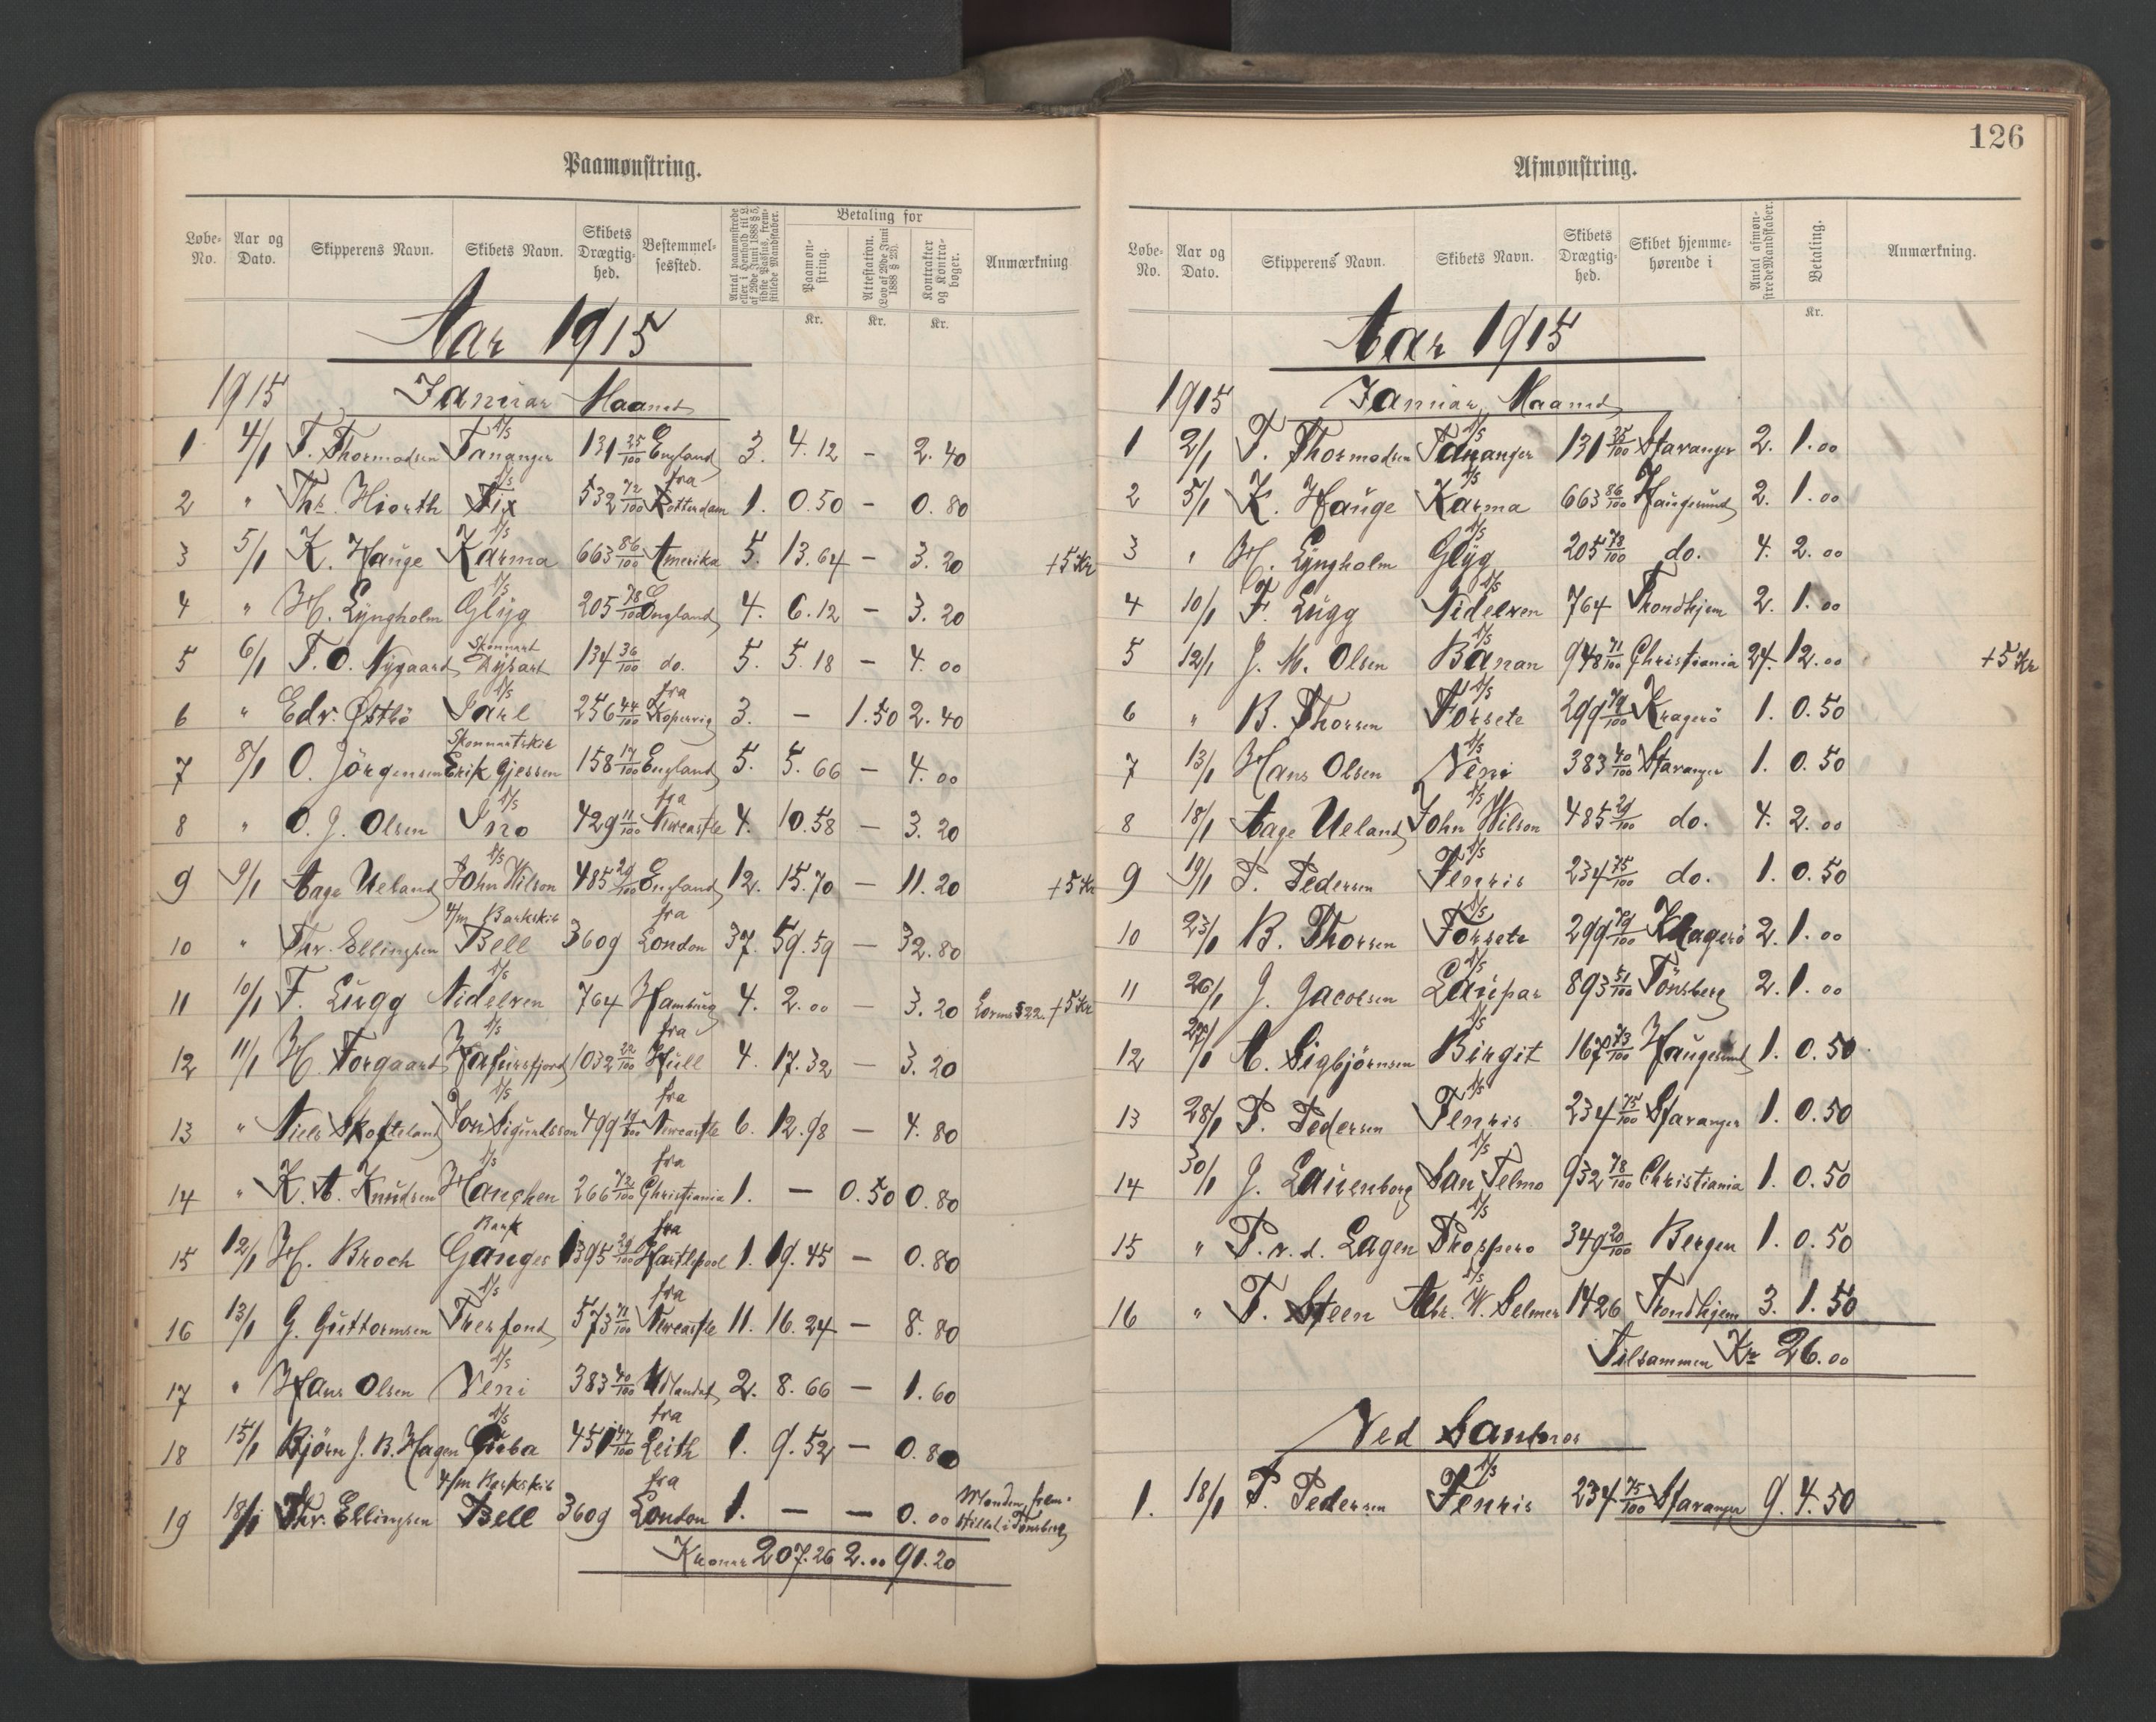 Paamønstring.
Løbe-No. Aar og Dato. Skipperens Navn. Skibets Navn. Skibets Drægtighed. Bestemmelsessted. Antal paamønstrede eller i Henhold til L. af 29de Juni 1888 § 5, sidste Passus, fremstillede Mandskaber. Betaling for Paamønstring. Attestation. (Lov af 29de Juni 1888 § 23). Kontrakter og Kontrabøger. Anmærkning
Kr. Kr. Kr.
Aar 1915
1915 Januar Maaned
1 4/1 T. Thormodsen D/S Tananger 131 25/100 England 3. 4.12 – 2.40
2 " Ths. Hiorth D/S Fix 532 72/100 fra Rotterdam 1. 0.50 – 0.80
3 5/1 K. Hauge D/S Karma 663 86/100 Amerika 5. 13.64 – 3.20 +5 Kr
4 " H. Lyngholm D/S Glyg 205 78/100 England 4. 6.12 – 3.20
5 6/1 T. O. Nygaard Skonnart Dysart 134 36/100 do. 5. 5.18 – 4.00
6 " Edv. Østbö D/S Jarl 256 44/100 fra Kopervig 3. – 1.50 2.40
7 8/1 O. Jörgensen Skonnertskib Erik Gjessen 158 17/100 England 5. 5.66 – 4.00
8 " O. J. Olsen D/S Ino 429 11/100 fra Newcastle 4. 10.58 – 3.20
9 9/1 Aage Ueland D/S John Wilson 485 29/100 England 12. 15.70 – 11.20 +5 Kr
10 " Thr. Ellingsen 4/m Barkskib Bell 3609 fra London 37. 59.59 – 32.80
11 10/1 F. Lugg D/S Nidelven 764 Hamburg 4. 2.00 – 3.20 Lovens § 22. +5 Kr
12 11/1 H. Torgaard D/S Hafursfjord 1032 22/100 fra Hull 4. 17.32 – 3.20
13 " Niels Skofteland D/S Jon Sigurdsson 499 fra Newcastle 6. 12.98 – 4.80
14 " K. A. Knudsen D/S Hanchen 266 72/100 fra Christiania 1. – 0.50 0.80
15 12/1 H. Broch Bark Ganges 1395 29/100 fra Hartlepool 1. 19.45 – 0.80
16 13/1 G. Guttormsen D/S Therfond 573 71/100 fra Newcastle 11. 16.24 – 8.80
17 " Hans Olsen D/S Veni 383 40/100 Udlandet 2. 8.66 – 1.60
18 15/1 Björn J. B. Hagen D/S 451 47/100 fra Leith 1. 9.52 – 0.80
19 18/1 Thr. Ellingsen 4/m Barkskib Bell 3609 fra London 1. – – 0.00 Manden frem-stillet i Tönsberg
Kroner 207.26 2.00 91.20
126
Afmønstring.
Løbe-No. Aar og Dato. Skipperens Navn. Skibets Navn. Skibets Drægtighed. Skibet hjemmehørende i Antal afmønstrede Mandskaber. Betaling. Anmærkning.
Kr.
Aar 1915
1915 Januar Maaned
1 2/1 T. Thormodsen D/S Tananger 131 25/100 Stavanger 2. 1.00
2 5/1 K. Hauge D/S Karma 663 86/100 Haugesund 2. 1.00
3 " H. Lyngholm D/S Glyg 205 78/100 do. 4. 2.00
4 10/1 F. Lugg D/S Nidelven 764 Trondhjem 2. 1.00
5 12/1 J. M. Olsen D/S Banan 948 71/100 Christiania 24. 12.00 +5 Kr
6 " B. Thorsen D/S Forsete 299 79/100 Kragerö 1. 0.50
7 13/1 Hans Olsen D/S Veni 383 40/100 Stavanger 1. 0.50
8 18/1 Aage Ueland D/S John Wilson 485 29/100 do. 4. 2.00
9 19/1 P. Pedersen D/S Fenris 234 75/100 do. 1. 0.50
10 23/1 B. Thorsen D/S Forsete 299 79/100 Kragerö 2. 1.00
11 26/1 J. Jacobsen D/S Laupar 893 51/100 Tönsberg 2. 1.00
12 27/1 A. Sigbjörnsen D/S Birgit 1670 73/100 Haugesund 1. 0.50
13 28/1 P. Pedersen D/S Fenris 234 75/100 Stavanger 1. 0.50
14 30/1 J. Laurenborg D/S San Telmo 932 78/100 Christiania 1. 0.50
15 " P. v. d. Lagen D/S Prospero 349 20/100 Bergen 1. 0.50
16 " T. Steen D/S Chr. W. Selmer 1426 Trondhjem 3. 1.50
Tilsammen Kr 26.00
Ved Santnos
1. 18/1 P. Pedersen D/S Fenris 234 75/100 Stavanger 9. 4.50